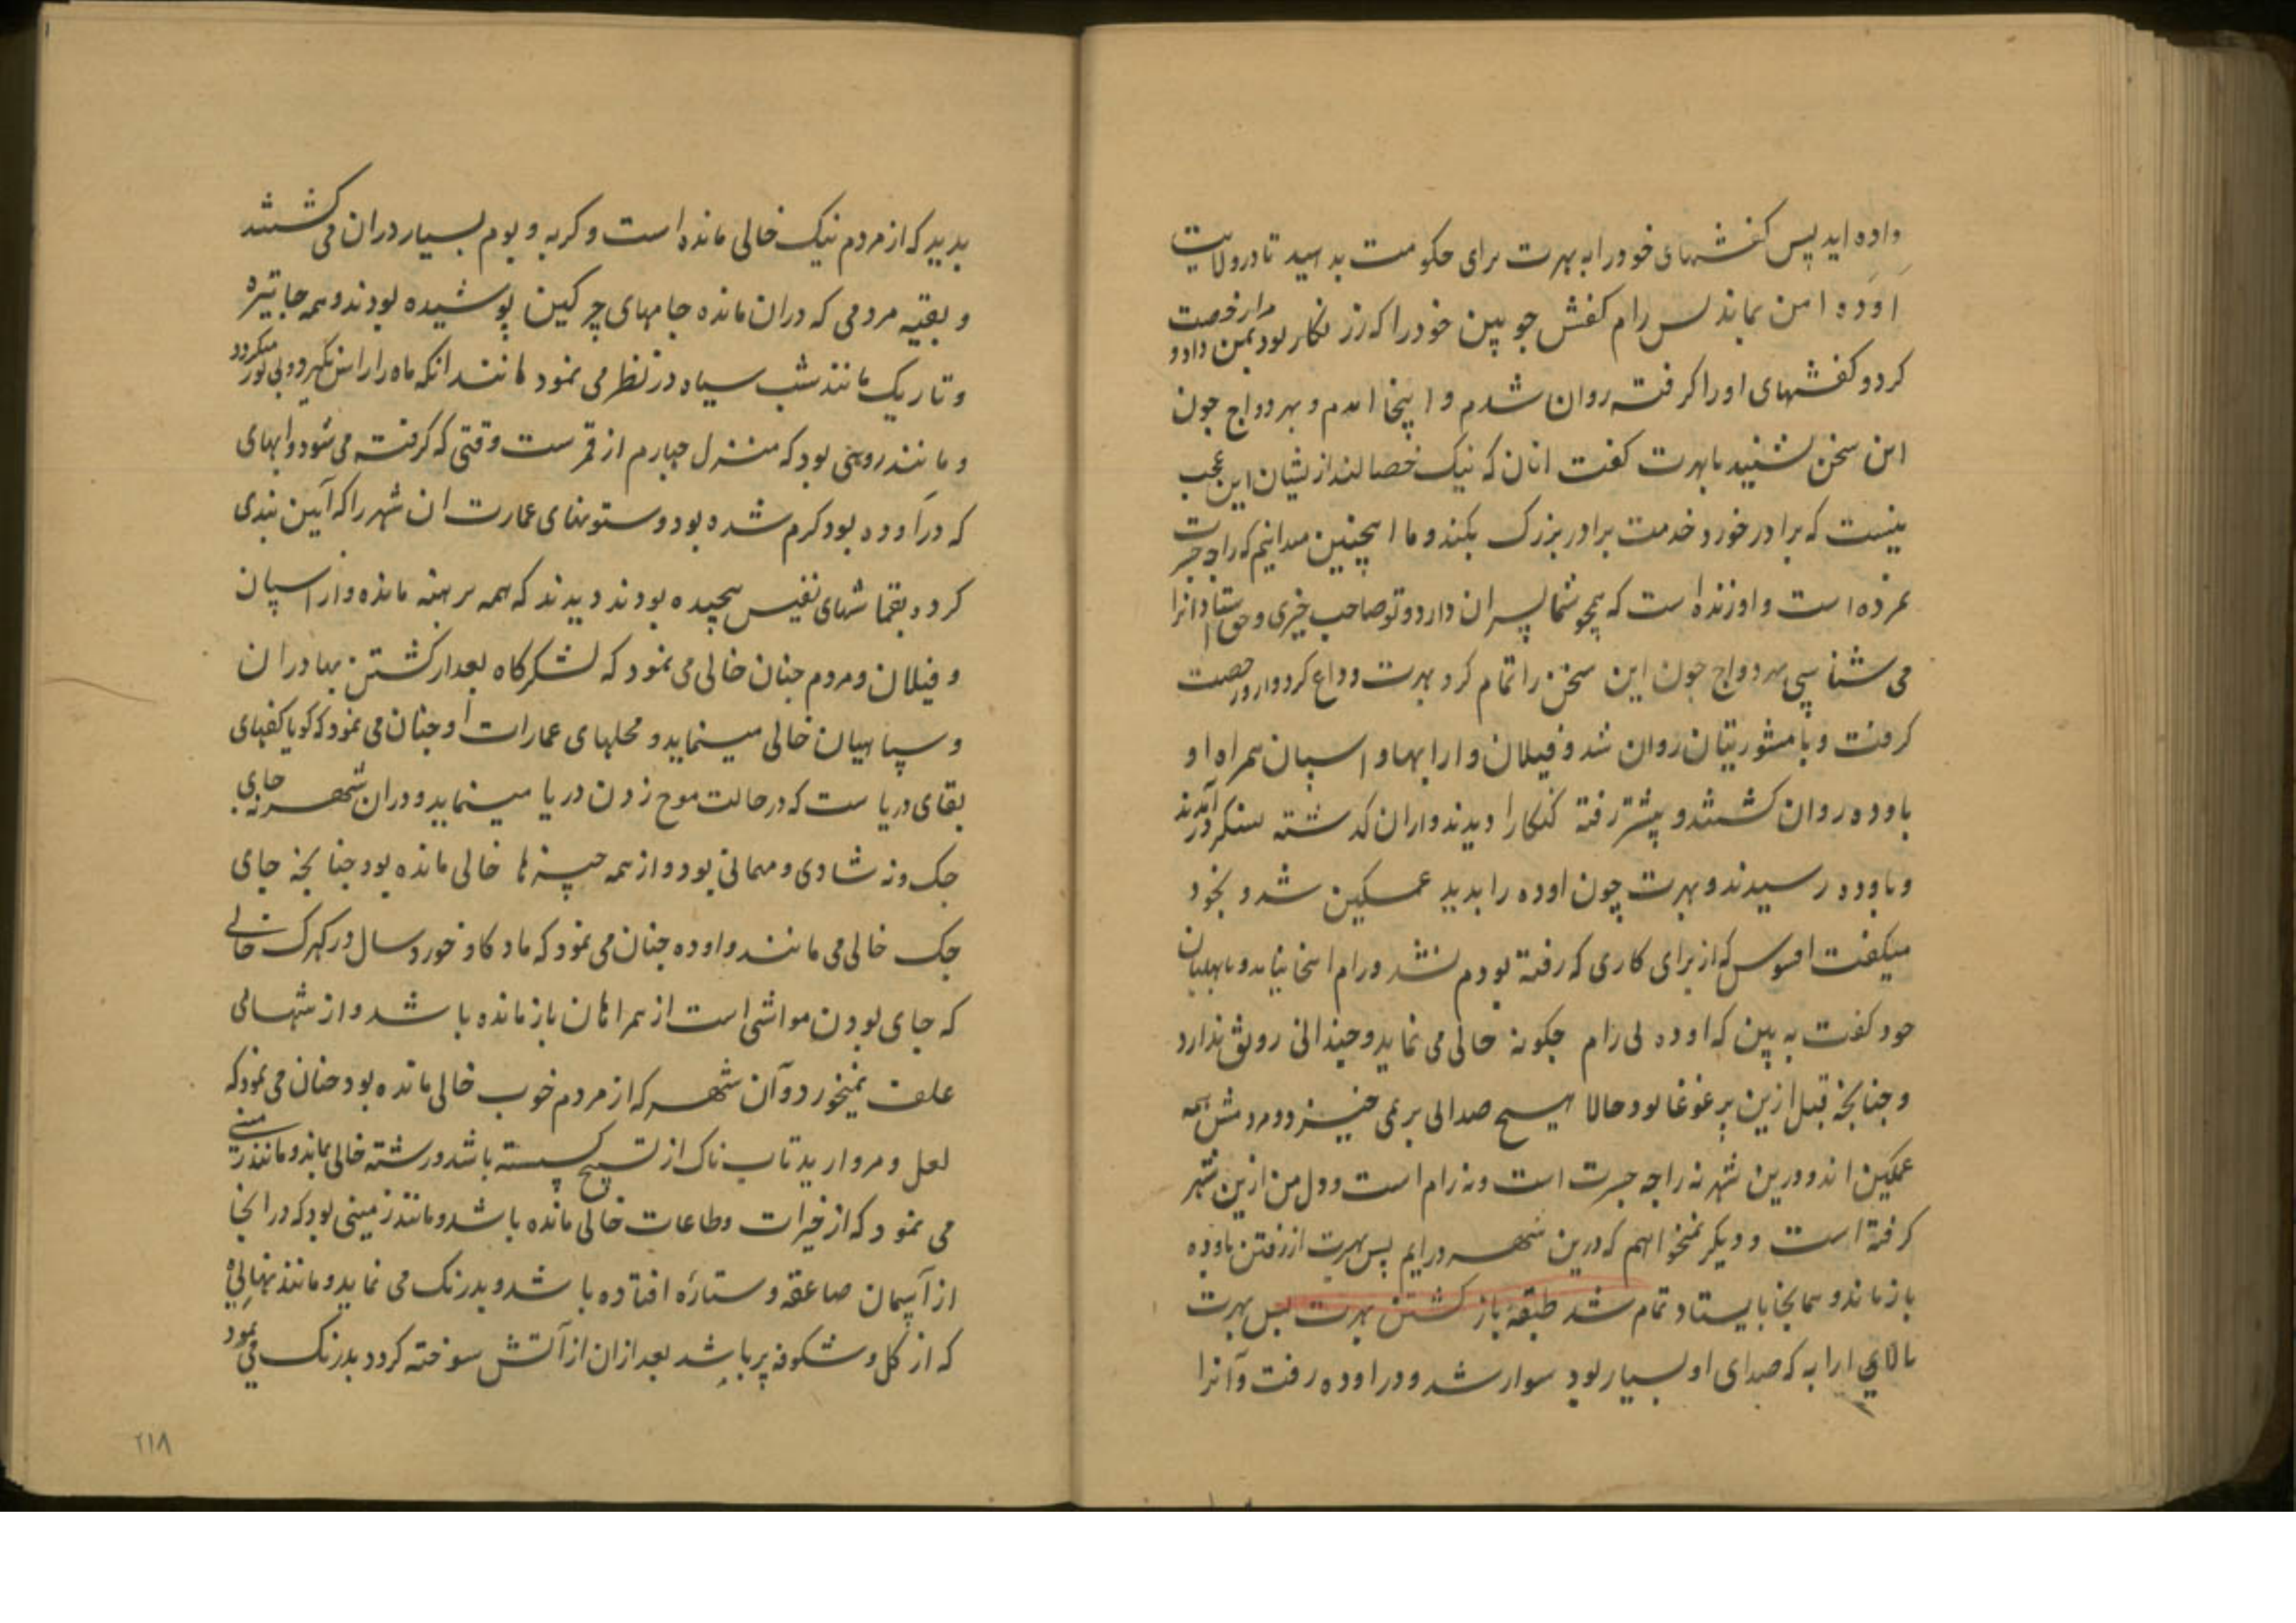 داده اید پس کفشهای خود را به بهرت برای حکومت بدهید تا در ولایت
اوده امن بماند پس رام کفش چوبین خود را که زر نکار بود بمن داد و مرا رخصت
کرد و کفشهای او را کرفته روان شدم و اینجا امدم و بهردواج چون
این سخن شنید با بهرت کفت انان که نیک خصالند ازیشان این عجب
نیست که برادر خورد خدمت برادر بزرک بکند و ما اینچنین میدانیم که راجه جسرت
نمرده است و او زنده است که همچو شما پسران دارد و تو صاحب خیری و حق استادانرا
می شناسی بهردواج چون این سخن را تمام کرد بهرت وداع کرد و ازو رخصت
کرفت و با مشورتیان روان شد و فیلان و ارابها و اسپان همراه او
باوده روان کشتند و پیشتر رفته کنکا را دیدند و ازان کذشته سنکرور آمدند
و باوده رسیدند و بهرت چون اوده را بدید غمکین شد و بخود
میکفت افسوس که از برای کاری که رفته بودم نشد و رام اینجا نیامد و با بهلبان
خود کفت به بین که اوده بی رام چکونه خالی می نماید و چندانی رونق ندارد
و چنانچه قبل ازین پر غوغا بود حالا هیچ صدائی بر نمی خیزد و مردمش همه
غمکین اند و درین شهر نه راجه جسرت است و نه رام است و دل من ازین شهر
کرفته است و دیکر نمیخواهم که درین شهر در ایم پس بهرت از رفتن باوده
باز ماند و همانجا بایستاد تمام شد طبقه باز کشتن بهرت پس بهرت
بالای ارابه که صدای او بسیار بود سوار شد و در اوده رفت و آنرا
بدید که از مردم نیک خالی مانده است و کربه و بوم بسیار دران می کشتند
و بقیه مردمی که دران مانده جامهای چرکین پوشیده بودند و همه جا تیره
و تاریک مانند شب سیاه در نظر می نمود مانند انکه ماه را راس بگیرد و بی نور میکردد
و مانند روهنی بود که منزل چهارم از قمر ست وقتی که کرفته می شود و ابهای
که در اوده بود کرم شده بود و ستونهای عمارت ان شهر را که آیین بندی
کرده بقماشهای نفیس پیچیده بودند دیدند که همه برهنه مانده و از اسپان
و فیلان و مردم چنان خالی می نمود که لشکرکاه بعد از کشتن بهادران
و سپاهیان خالی مینماید و محلهای عمارات او چنان می نمود که کویا کفهای
بقای دریا ست که در حالت موج زدن دریا مینماید و دران شهر نه جای
جک و نه شادی و مهمانی بود و از همه چیزها خالی مانده بود چنانچه جای
جک خالی می مانند و اوده چنان می نمود که ماده کاو خورد سال در کهرک خالی
که جای بودن مواشی است از همراهان باز مانده باشد و از تنهائی
علف نمیخورد و آن شهر که از مردم خوب خالی مانده بود چنان می نمود که
لعل و مروارید تاب ناک از تسبیح کسسته باشد و رشته خالی بماند و مانند زمینی
می نمود که از خیرات و طاعات خالی مانده باشد و مانند زمینی بود که در انجا
از آسمان صاعقه و ستاره افتاده باشد و بد رنک می نماید و مانند نهالی
که از کل و شکوفه پر باشد بعد ازان از آتش سوخته کردد بد رنک می نمود
۲۱۸